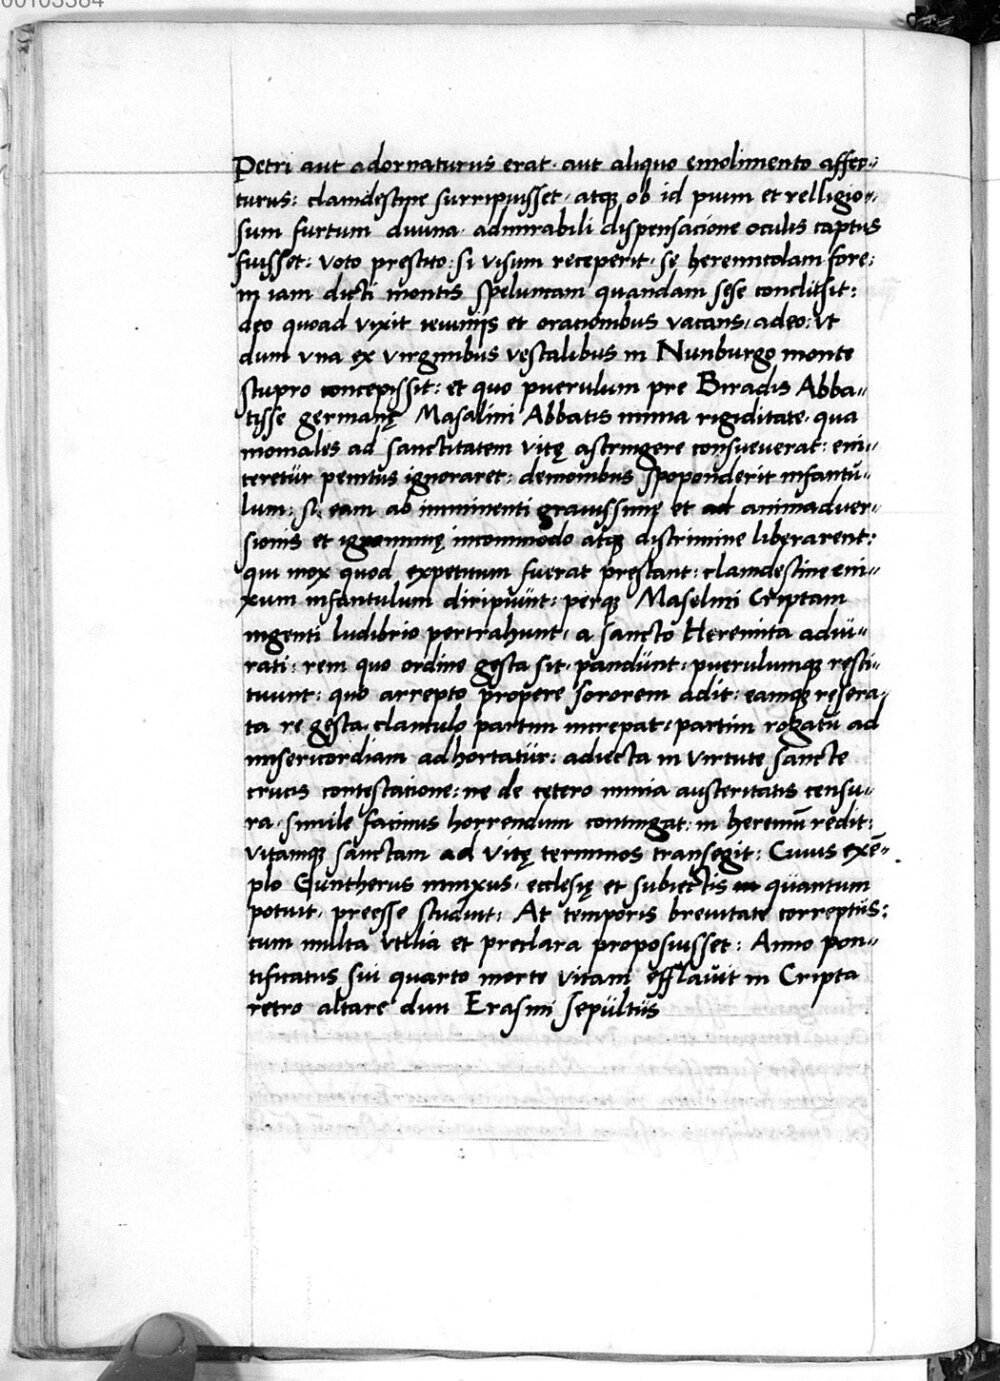 00103384
Petri aut adornaturus erat · aut aliquo emolimento affec„
turus: clamdestine surripuisset · atque ob id pium et relligio„
sum furtum diuina · admirabili dispensacione oculis captus
fuisset: voto prestito · si visum receperit · sę heremicolam fore:
in iam dicti montis speluncam quandam sese conclusit:
deo quoad vixit ieiunijs et oracionibus vacans, adeo: vt
dum vna ex virginibus vestalibus in Nunburgo monte
stupro concepissit: et quo puerulum pre Biradis Abba„
tisse germanę Masalini Abbatis nimia rigiditate · qua
moniales ad sanctitatem vitę astringere consueuerat: eni„
teretur penitus ignoraret: demonibus spoponderit infantu„
lum: si eam ab imminenti grauissimę et ad animaduer„
sionis et ignominię incommodo atque discrimine liberarent:
qui mox quod expetitum fuerat prestant: clamdestine eni„
xum infantulum diripiunt: perque Maselini Criptam
ingenti ludibrio pertrahunt, a sancto Heremita adiu„
rati: rem quo ordine gesta sit · pandunt: puerulumque resti„
tuunt: quo arrepto propere sororem adit: eamque resera„
ta re gesta clanculo partim increpat: partim rogatu ad
misericordiam adhortatur: adiecta in virtute sancte
crucis contestacione: ne de cetero nimia austeritatis censu„
ra · simile facinus horrendum contingat: in heremū redit:
vitamque sanctam ad vitę terminos transegit: Cuius exē„
plo Guntherus innixus · ecclesię et subiectis in quantum
potuit · preesse studuit: At temporis breuitate correptus:
cum multa vtilia et preclara proposuisset: Anno pon„
tificatus sui quarto morte vitam efflauit in Cripta
retro altare diui Erasmi sepultus